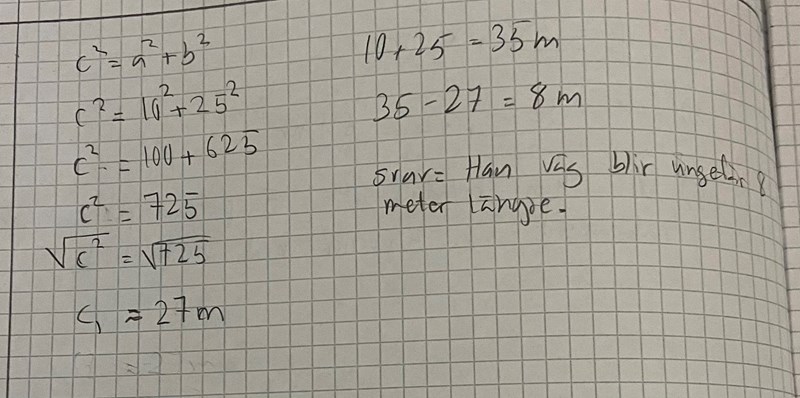 c² = a² + b²
c² = 10² + 25²
c² = 100 + 625
c² = 725
√c² = √725
c₁ ≈ 27m
10 + 25 = 35m
35 - 27 = 8m
svar= Han väg blir ungefär 8
meter längre.